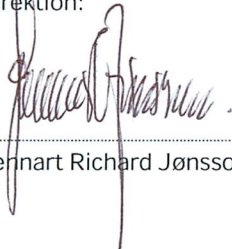 rektion:
ennart Richard Jønsso